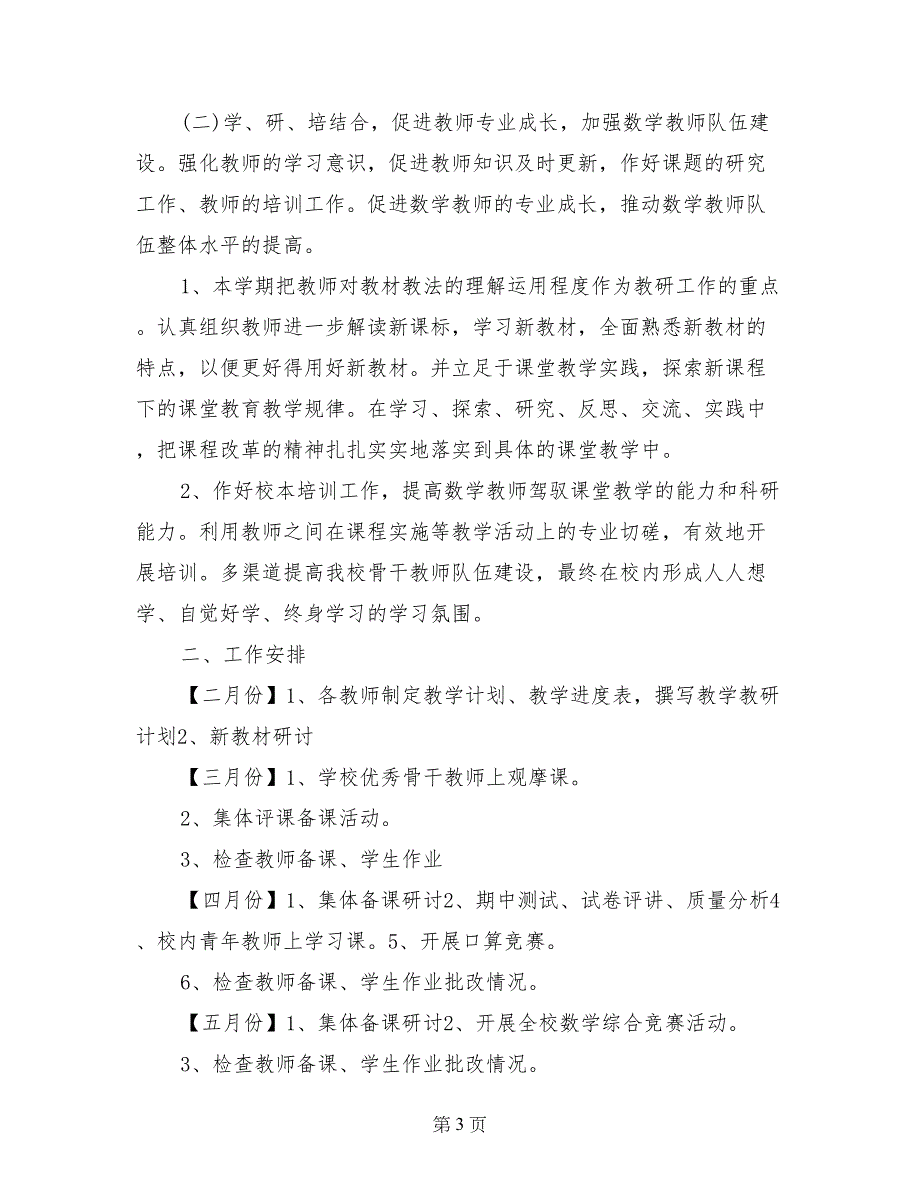 (二)学、研、培结合，促进教师专业成长，加强数学教师队伍建
设。强化教师的学习意识，促进教师知识及时更新，作好课题的研究
工作、教师的培训工作。促进数学教师的专业成长，推动数学教师队
伍整体水平的提高。
1、本学期把教师对教材教法的理解运用程度作为教研工作的重点
。认真组织教师进一步解读新课标，学习新教材，全面熟悉新教材的
特点，以便更好得用好新教材。并立足于课堂教学实践，探索新课程
下的课堂教育教学规律。在学习、探索、研究、反思、交流、实践中
，把课程改革的精神扎扎实实地落实到具体的课堂教学中。
2、作好校本培训工作，提高数学教师驾驭课堂教学的能力和科研
能力。利用教师之间在课程实施等教学活动上的专业切磋，有效地开
展培训。多渠道提高我校骨干教师队伍建设，最终在校内形成人人想
学、自觉好学、终身学习的学习氛围。
二、工作安排
【二月份】1、各教师制定教学计划、教学进度表，撰写教学教研
计划2、新教材研讨
【三月份】1、学校优秀骨干教师上观摩课。
2、集体评课备课活动。
3、检查教师备课、学生作业
【四月份】1、集体备课研讨2、期中测试、试卷评讲、质量分析4
、校内青年教师上学习课。5、开展口算竞赛。
6、检查教师备课、学生作业批改情况。
【五月份】1、集体备课研讨2、开展全校数学综合竞赛活动。
3、检查教师备课、学生作业批改情况。
第 3 页